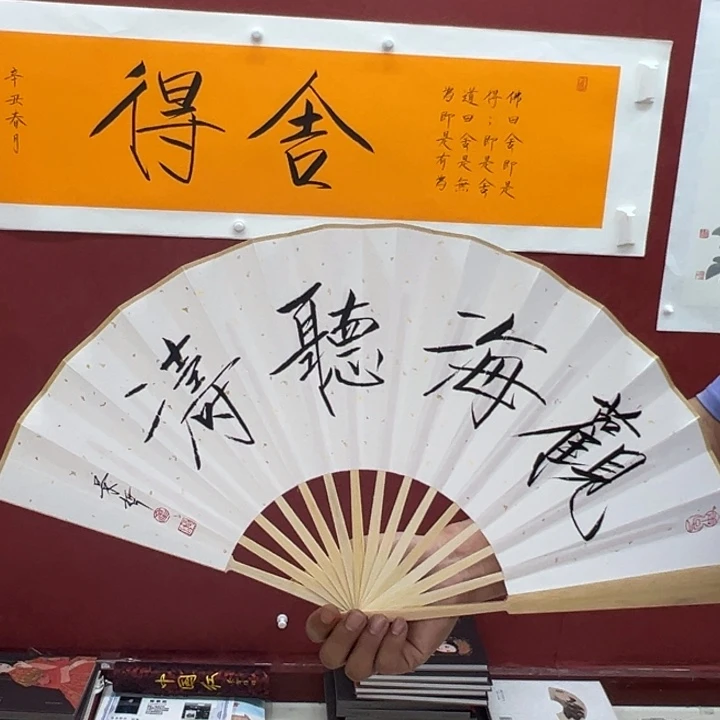 佛曰舍即是
得；即是舍
道曰舍是無
為即是有為
舍得
辛丑春月
觀海聽濤
中国红